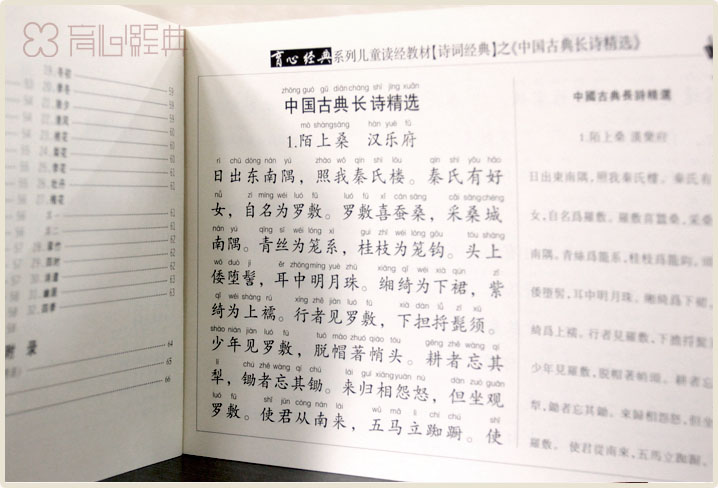 育心经典
59
59
60
60
60
60
60
61
61
62
62
63
63
附 录
64
65
66
育心经典系列儿童读经教材【诗词经典】之《中国古典长诗精选》
zhōng guó gǔ diǎn cháng shī jīng xuǎn
中国古典长诗精选
mò shàng sāng hàn yuè fǔ
1.陌上桑 汉乐府
rì chū dōng nán yú zhào wǒ qín shì lóu qín shì yǒu hǎo
日出东南隅，照我秦氏楼。秦氏有好
nǚ zì míng wéi luó fū luó fū xǐ cán sāng cǎi sāng chéng
女，自名为罗敷。罗敷喜蚕桑，采桑城
nán yú qīng sī wéi lóng xì guì zhī wéi lóng gōu tóu shàng
南隅。青丝为笼系，桂枝为笼钩。头上
wō duò jì ěr zhōng míng yuè zhū xiāng qǐ wéi xià qún zǐ
倭堕髻，耳中明月珠。缃绮为下裙，紫
qǐ wéi shàng rú xíng zhě jiàn luó fū xià dàn lǚ zī xū
绮为上襦。行者见罗敷，下担捋髭须。
shào nián jiàn luó fū tuō mào zhuó qiào tóu gēng zhě wàng qí
少年见罗敷，脱帽著帩头。耕者忘其
lí chú zhě wàng qí chú lái guī xiāng yuàn nù dàn zuò guān
犁，锄者忘其锄。来归相怨怒，但坐观
luó fū shǐ jūn cóng nán lái wǔ mǎ lì chí chú shǐ
罗敷。使君从南来，五马立踟蹰。使
中國古典長詩精選
1.陌上桑 漢樂府
日出東南隅，照我秦氏樓。秦氏有
女，自名爲羅敷。羅敷喜蠶桑，采
南隅。青絲爲籠系，桂枝爲籠鉤。頭
倭墮髻，耳中明月珠。緗綺爲下裙，
綺爲上襦。行者見羅敷，下擔捋髭
少年見羅敷，脱帽著帩頭。耕者忘
犁，鋤者忘其鋤。來歸相怨怒，但坐
羅敷。使君從南來，五馬立踟躕。